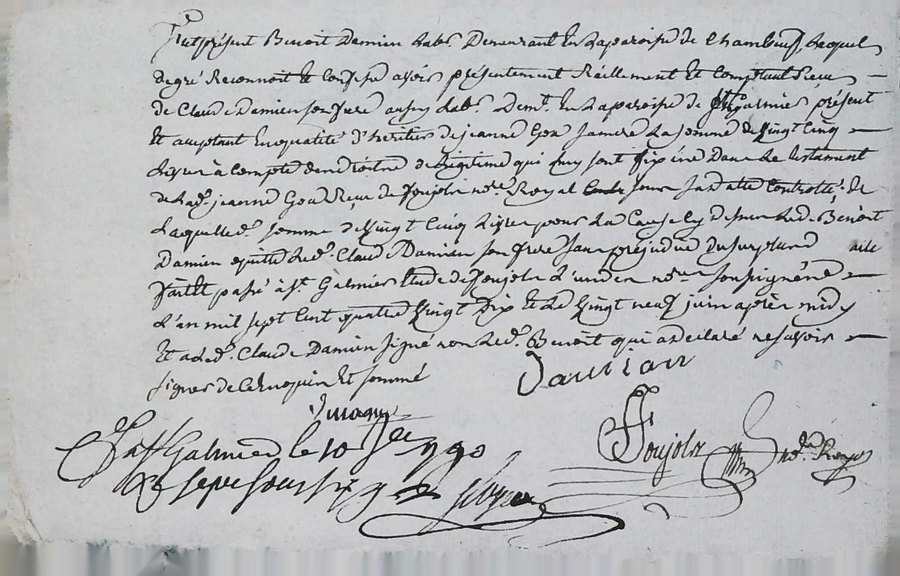 Fut présent Benoit Damien Labr Demeurant En La paroisse de Chambeuf, Lequel
de gré Reconnoit Et Confesse avoir présentement Réellement Et Comptant Reçu
de Claude Damien son frere aussy Labr. Demt. En La paroisse de St Galmier présent
Et acceptant En qualité d'heritier de jeanne Gou sa mere La somme de Vingt Cinq
Livres à Compte des droits de Légitime qui luy sont fixé Dans Le testament
de Lad. jeanne Gou Reçu de Poujol nore. Royal sous sa datte Controllé, de
Laquelle d. somme de Vingt Cinq Livres pour La Cause Cy dessus Led. Benoit
Damien quitte Led. Claude Damien son frere sans préjudice du surplus acte
fait Et passé à St. Galmier Etude de Poujol L'un des nores soussigné
L'an mil sept Cent quatre Vingt Dix Et Le Vingt neuf juin après midy
Et a Led. Claude Damien signé non Led. Benoit qui a déclaré ne savoir
signer de Ce Enquis Et sommé
Damian
Poujol
à St Galmier le 10
790